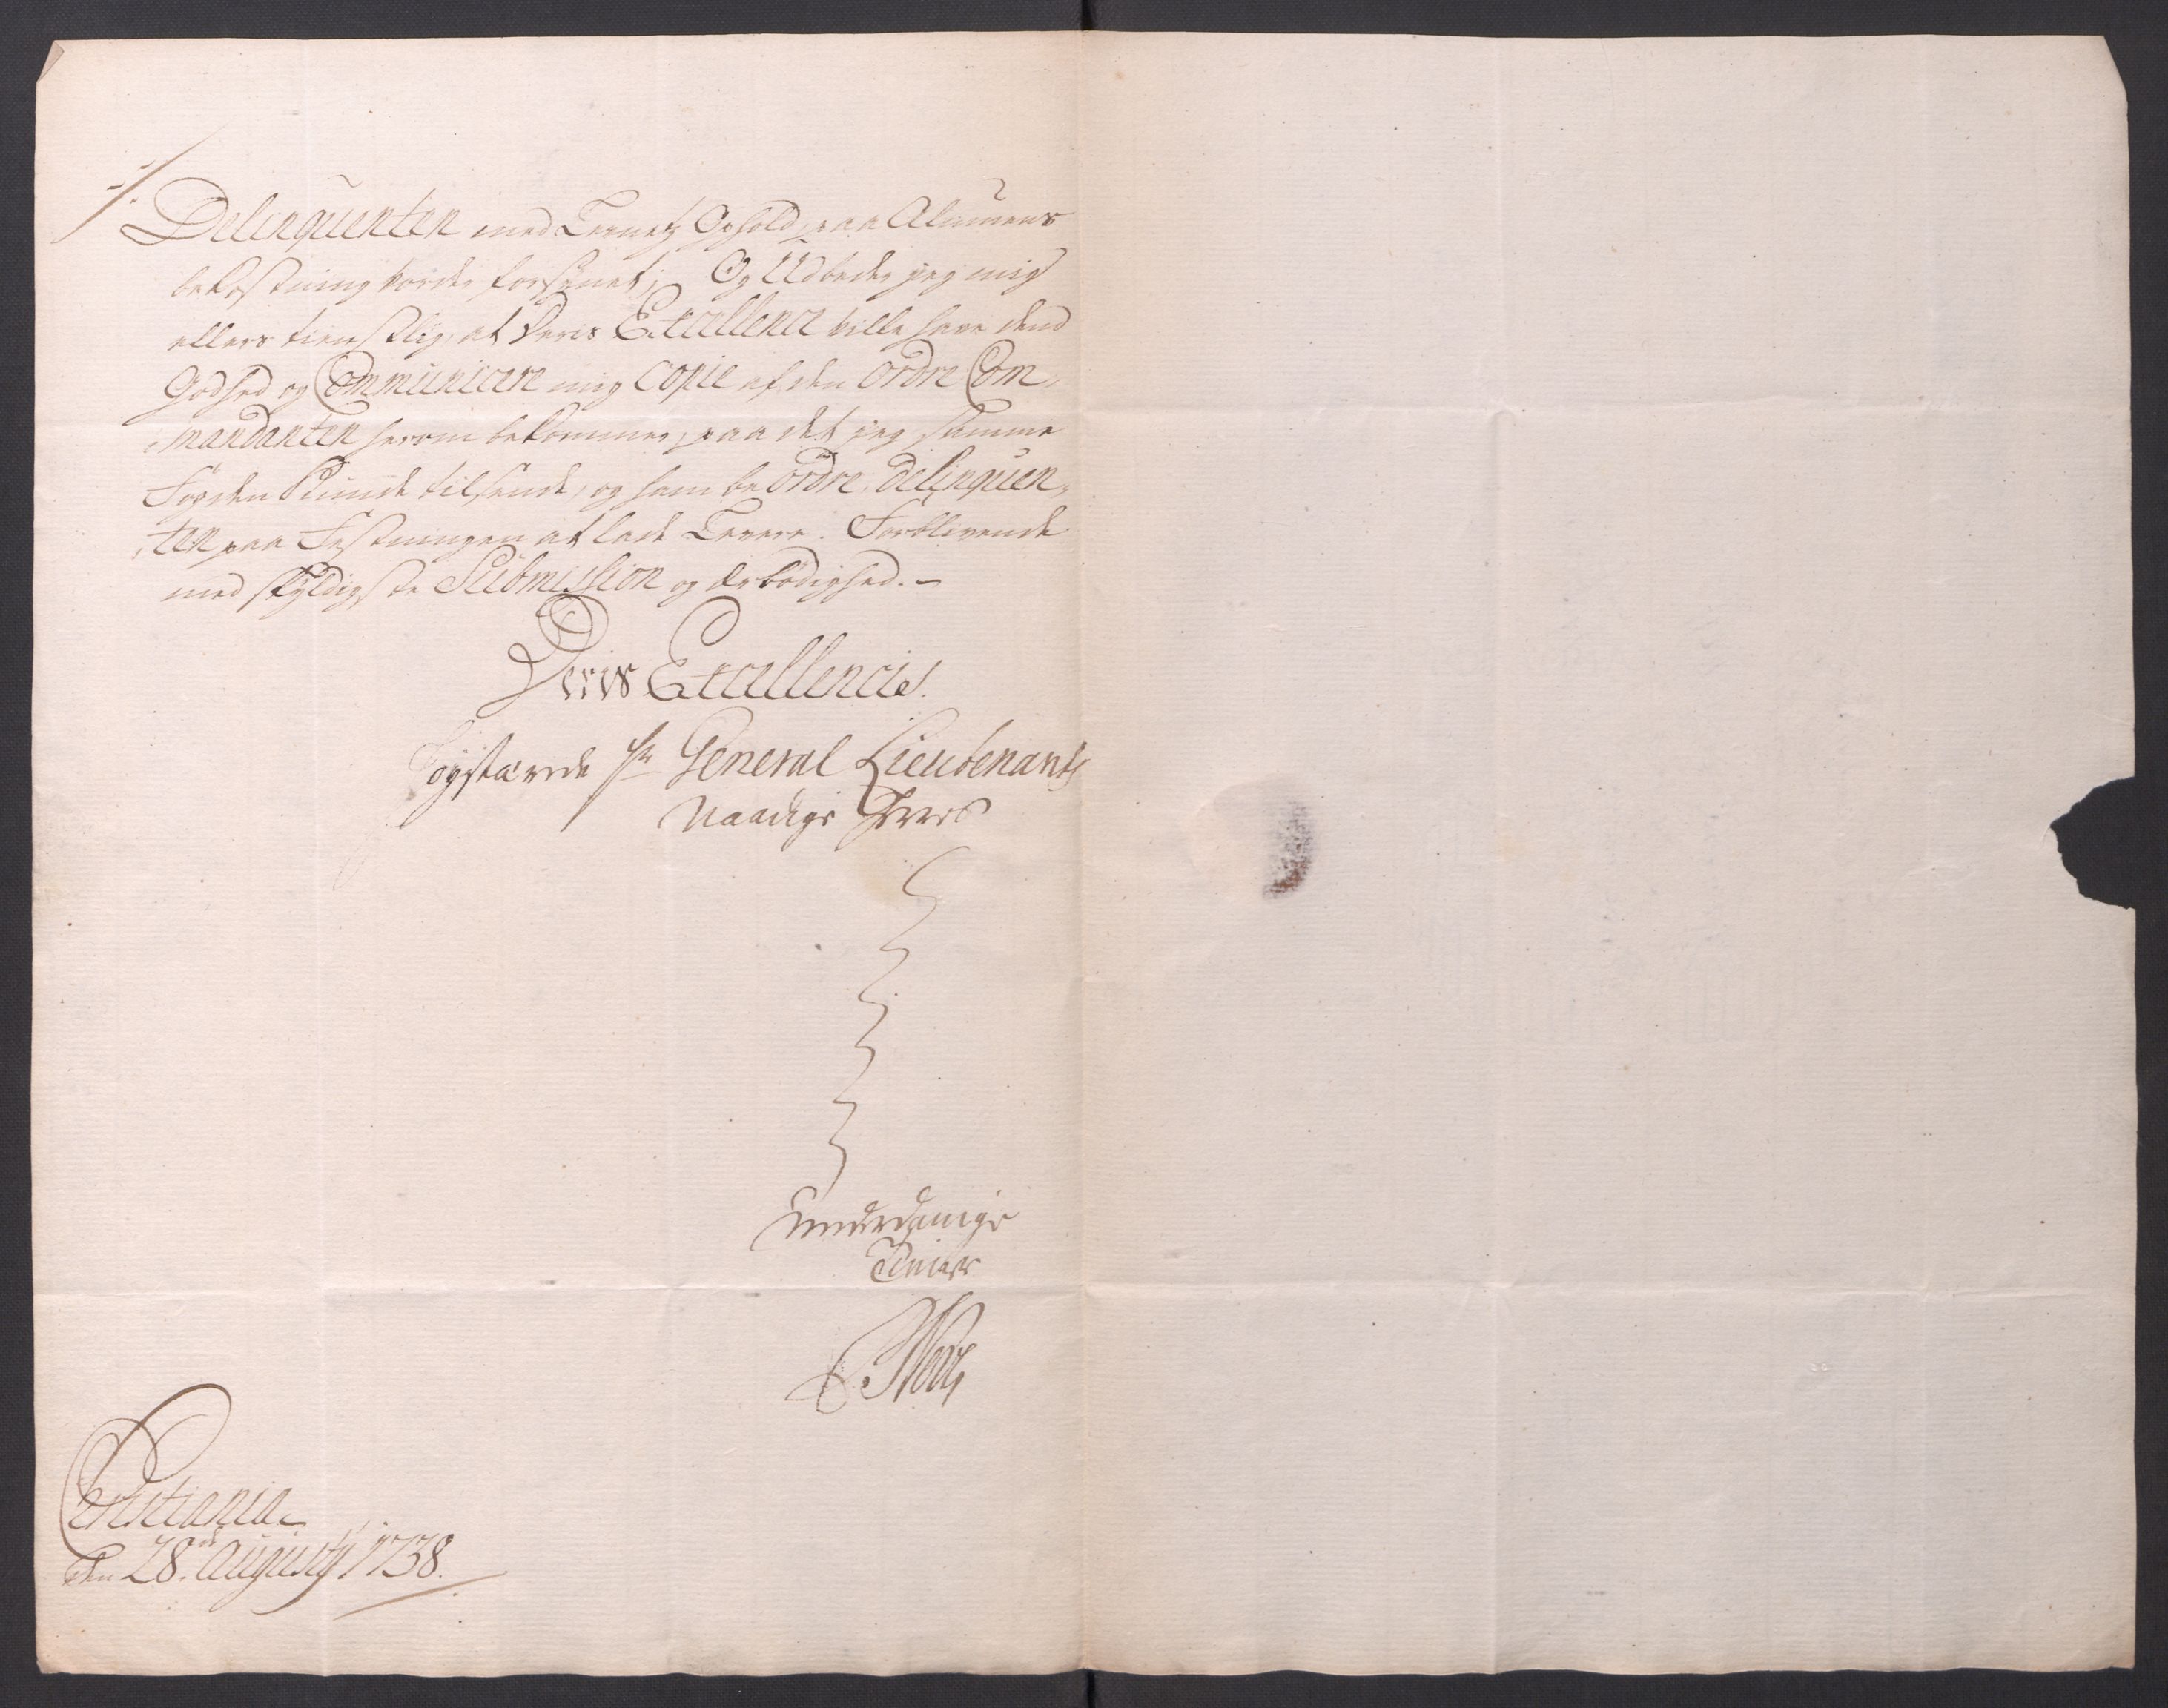 Delinquenten med Levnetz Ophold paa Almuens
bekostning vorder forsÿnet; Og Udbeder jeg mig
ellers tienstlig, at Deris Excellence ville have dend
Godhed og Communicere mig Copie af den Ordre Com-
mandanten herom bekommer, paa det jeg samme
Fogden Kunde tilsende, og ham beordre, delinquen-
ten paa Festningen at lade Levere. Forblivende
med skÿldigste Submission og ærbødighed.-
Deris Excellences
Høystærede Hr General Lieutenants
Naadige Herres
Underdanige
Tiener
Christiania
den 28de Augustij 1738.